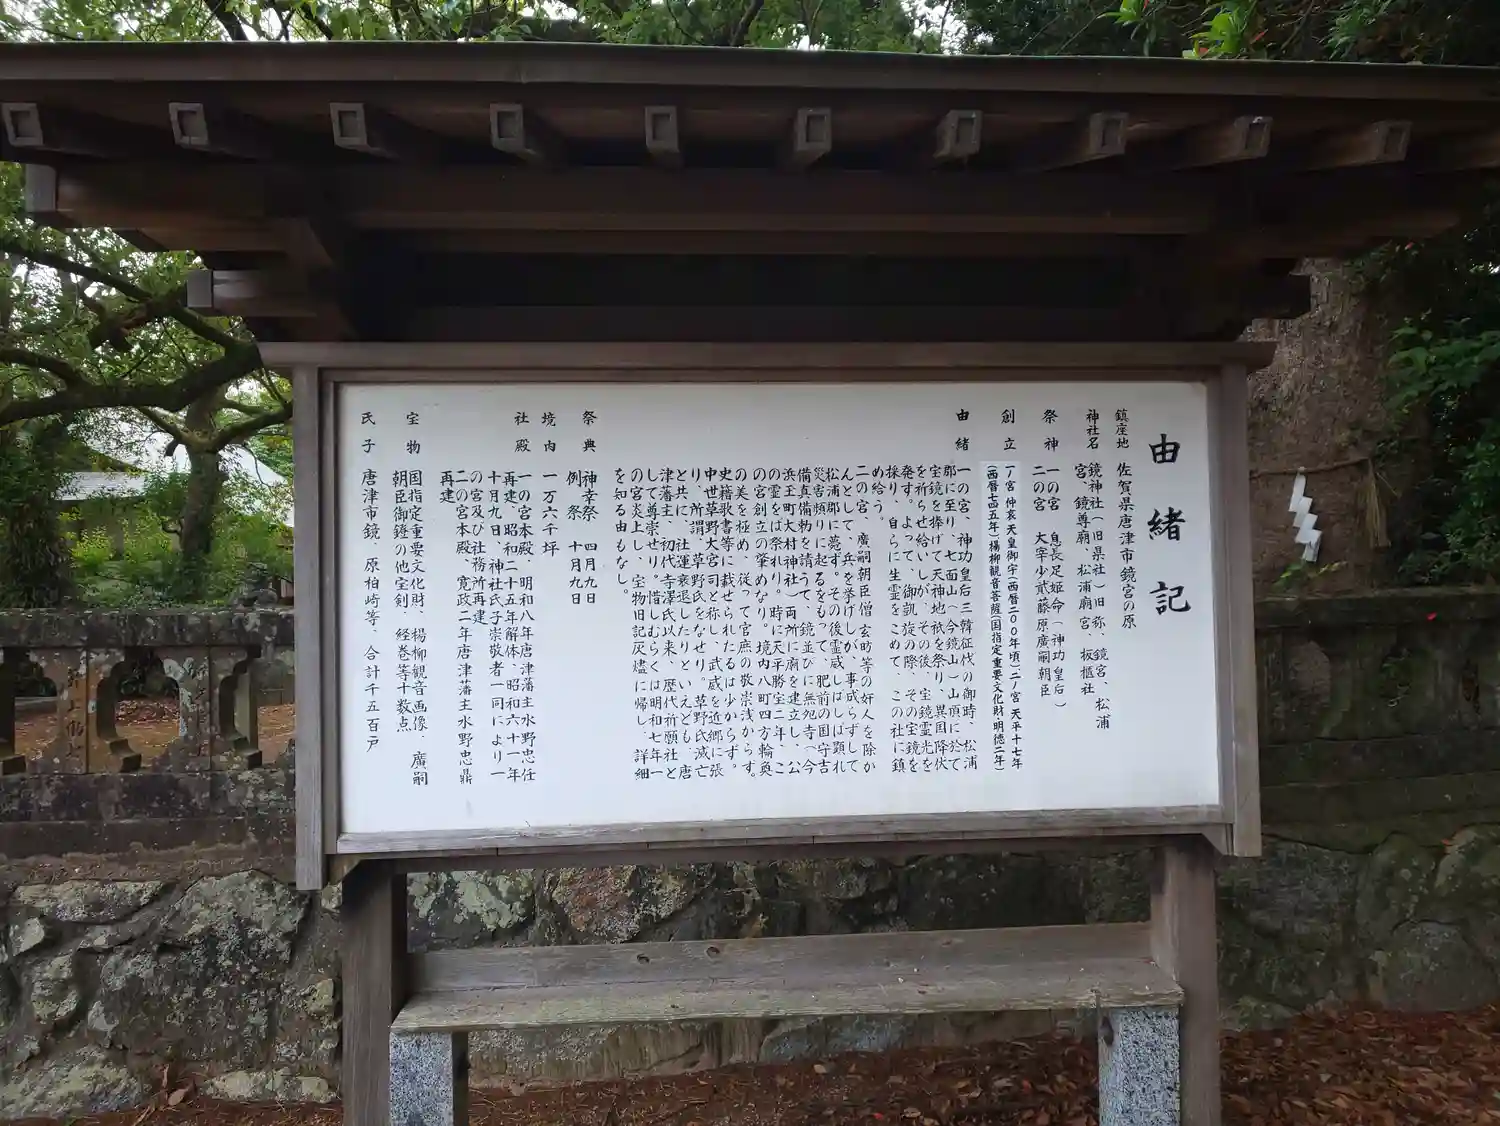 由緒記
鎮座地 佐賀県唐津市鏡宮の原
神社名 鏡神社(旧県社)旧称、鏡宮、松浦
宮、鏡尊廟、松浦廟宮、板櫃社
祭神 一の宮 息長足姫命(神功皇后)
二の宮 大宰少貳藤原廣嗣朝臣
創立 一ノ宮 仲哀天皇御宇(西暦二〇〇年頃)二ノ宮 天平十七年
(西暦七四五年)楊柳観音菩薩(国指定重要文化財・明徳二年)
由緒 一の宮、神功皇后三韓征伐の御時、松浦
郡に至り七面山(今鏡山)山頂に於て
宝鏡を捧げて天神地祇を祭り、異国降伏
を祈らせ給いしが、その後、宝鏡霊光を
発す。よって、御凱旋の際、その宝鏡を
採り、自らに生霊をこめて、この社に鎮
め給う。
二の宮、廣嗣朝臣僧玄昉等の奸人を除か
んとして、兵を挙げしが、事成らずして
松浦郡に薨ず。その後霊威しはしは顕れ
災害頻りに起るをもって、肥前の国守吉
備真備物を請うて、鏡並びに無怨寺(今
浜玉町大村神社)両所に廟を建立し、公
の霊をば祭れり。時に天平勝宝二年、こ
の宮創立の肇めなり。境内八町四方輪奐
の美を極め、従って宮庶の敬崇浅からず。
史籍歌書等に裁せられたるは少からず。
中世草野大宮司と称し、武威を近郷に張
り、所謂、草野氏をなせり。草野氏滅亡
と共に、社運衰退したりといえども、唐
津藩主、初代寺澤氏以来、歴代祈願社と
して尊崇せり。惜しむらくは明和七年一
の宮炎上し、宝物旧記灰燼に帰し、詳細
を知る由もなし。
祭典 神幸祭 四月九日
例祭 十月九日
境内 一万六千坪
社殿 一の宮本殿、明和八年唐津藩主水野忠任
再建、昭和二十五年解体、昭和六十一年
十月九日、神社氏子崇敬者一同により一
の宮及び社務所再建
二の宮本殿、寛政二年唐津藩主水野忠鼎
再建
宝物 国指定重要文化財、楊柳観音画像、廣嗣
朝臣御鐙の他宝剣、経巻等十数点
氏子 唐津市鏡、原柏崎等、合計千五百戸